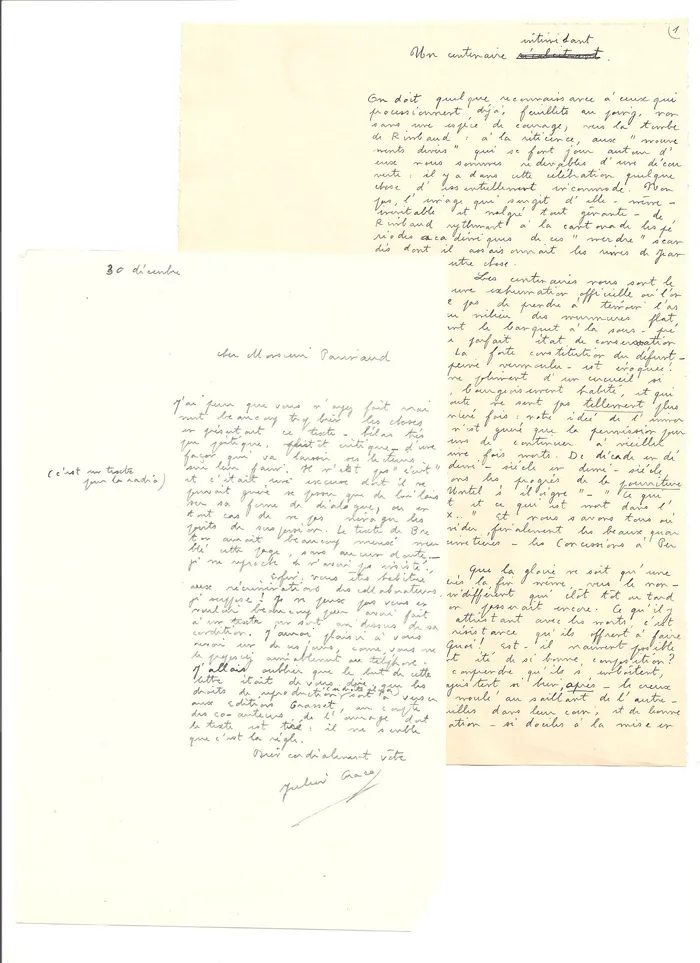 1
intimidant
Un centenaire
On doit quelque reconnaissance à ceux qui
processionnent déjà, feuillets au poing, non
sans une espèce de courage, vers la tombe
de Rimbaud : à la réticence, aux "mouve
ments divers" qui se font jour autour d'
eux nous sommes redevables d'une décou
verte : il y a dans cette célébration quelque
chose d'essentiellement incommode. Non
pas, l'image qui surgit d'elle-même -
inévitable et malgré tout gênante - de
Rimbaud rythmant à la cantonade les pé
riodes académiques de ces "merdre" scan
dés dont il assaisonnait les rimes de Jean
utre chose.
Les centenaires nous sont le
une exhumation officielle où l'on
e pas de prendre à témoin l'as
au milieu des murmures flat
nt le banquet à la sous-pré
e parfait état de conservation
La forte constitution du défunt -
peine vermoulu - est évoquée.
ne joliment d'un cercueil si
bourgeoisement habité, et qui
oute ne sont pas tellement plus
notre idée de l'immor
n'est guère que la permission pour
uns de continuer à vieillir
une fois morts. De décade en dé
demi-siècle en demi-siècle,
ons les progrès de la pourriture
"Ce qui
t et ce qui est mort dans l'
x." Et nous savons tous où
finalement les beaux quar
cimetières - les Concessions à Per
Que la gloire ne soit qu'une
la fin même, vers le non-
indifférent qui clôt tôt ou tard
on passerait encore. Ce qu'il y
attristant avec les morts, c'est
résistance qu'ils offrent à faire
Quoi! est-il vraiment possible
t été de si bonne composition?
comprendre qu'ils s'emboîtent,
si bien, après - le creux
moule au saillant de l'autre -
uilles dans leur coin, et de bonne
ation - si dociles à la mise en
30 décembre
cher Monsieur Pauvraud
J'ai peur que vous n'ayez fait vrai
ment beaucoup trop bien les choses
en présentant ce texte - hélas très
peu poétique, plutôt critique - d'une
façon qui va
sur leur faim. Il n'est pas "écrit"
(c'est un texte
pour la radio)
et c'était une excuse dont il ne
pouvait guère se passer que de lui laisser
sa forme de dialogue, ou en
tout cas de ne pas ménager les
points de suspension. Le texte de Bre
ton aurait beaucoup mieux meu
blé cette page, sans aucun doute -
je me reproche de n'avoir pas insisté.
Enfin, vous êtes habitué
aux récriminations des collaborateurs,
je suppose! Je ne peux pas vous en
vouloir beaucoup pour avoir fait
à un texte un sort au dessus de sa
condition. J'aurai plaisir à vous
revoir un de ces jours, comme vous me
le proposez aimablement au téléphone.
J'allais oublier que le but de cette
lettre était de vous dire que les
droits de reproduction sont à verser
aux éditions Grasset, au compte
des co-auteurs de l'ouvrage dont
le texte est tiré : il me semble
que c'est la règle.
Bien cordialement vôtre
Julien Gracq